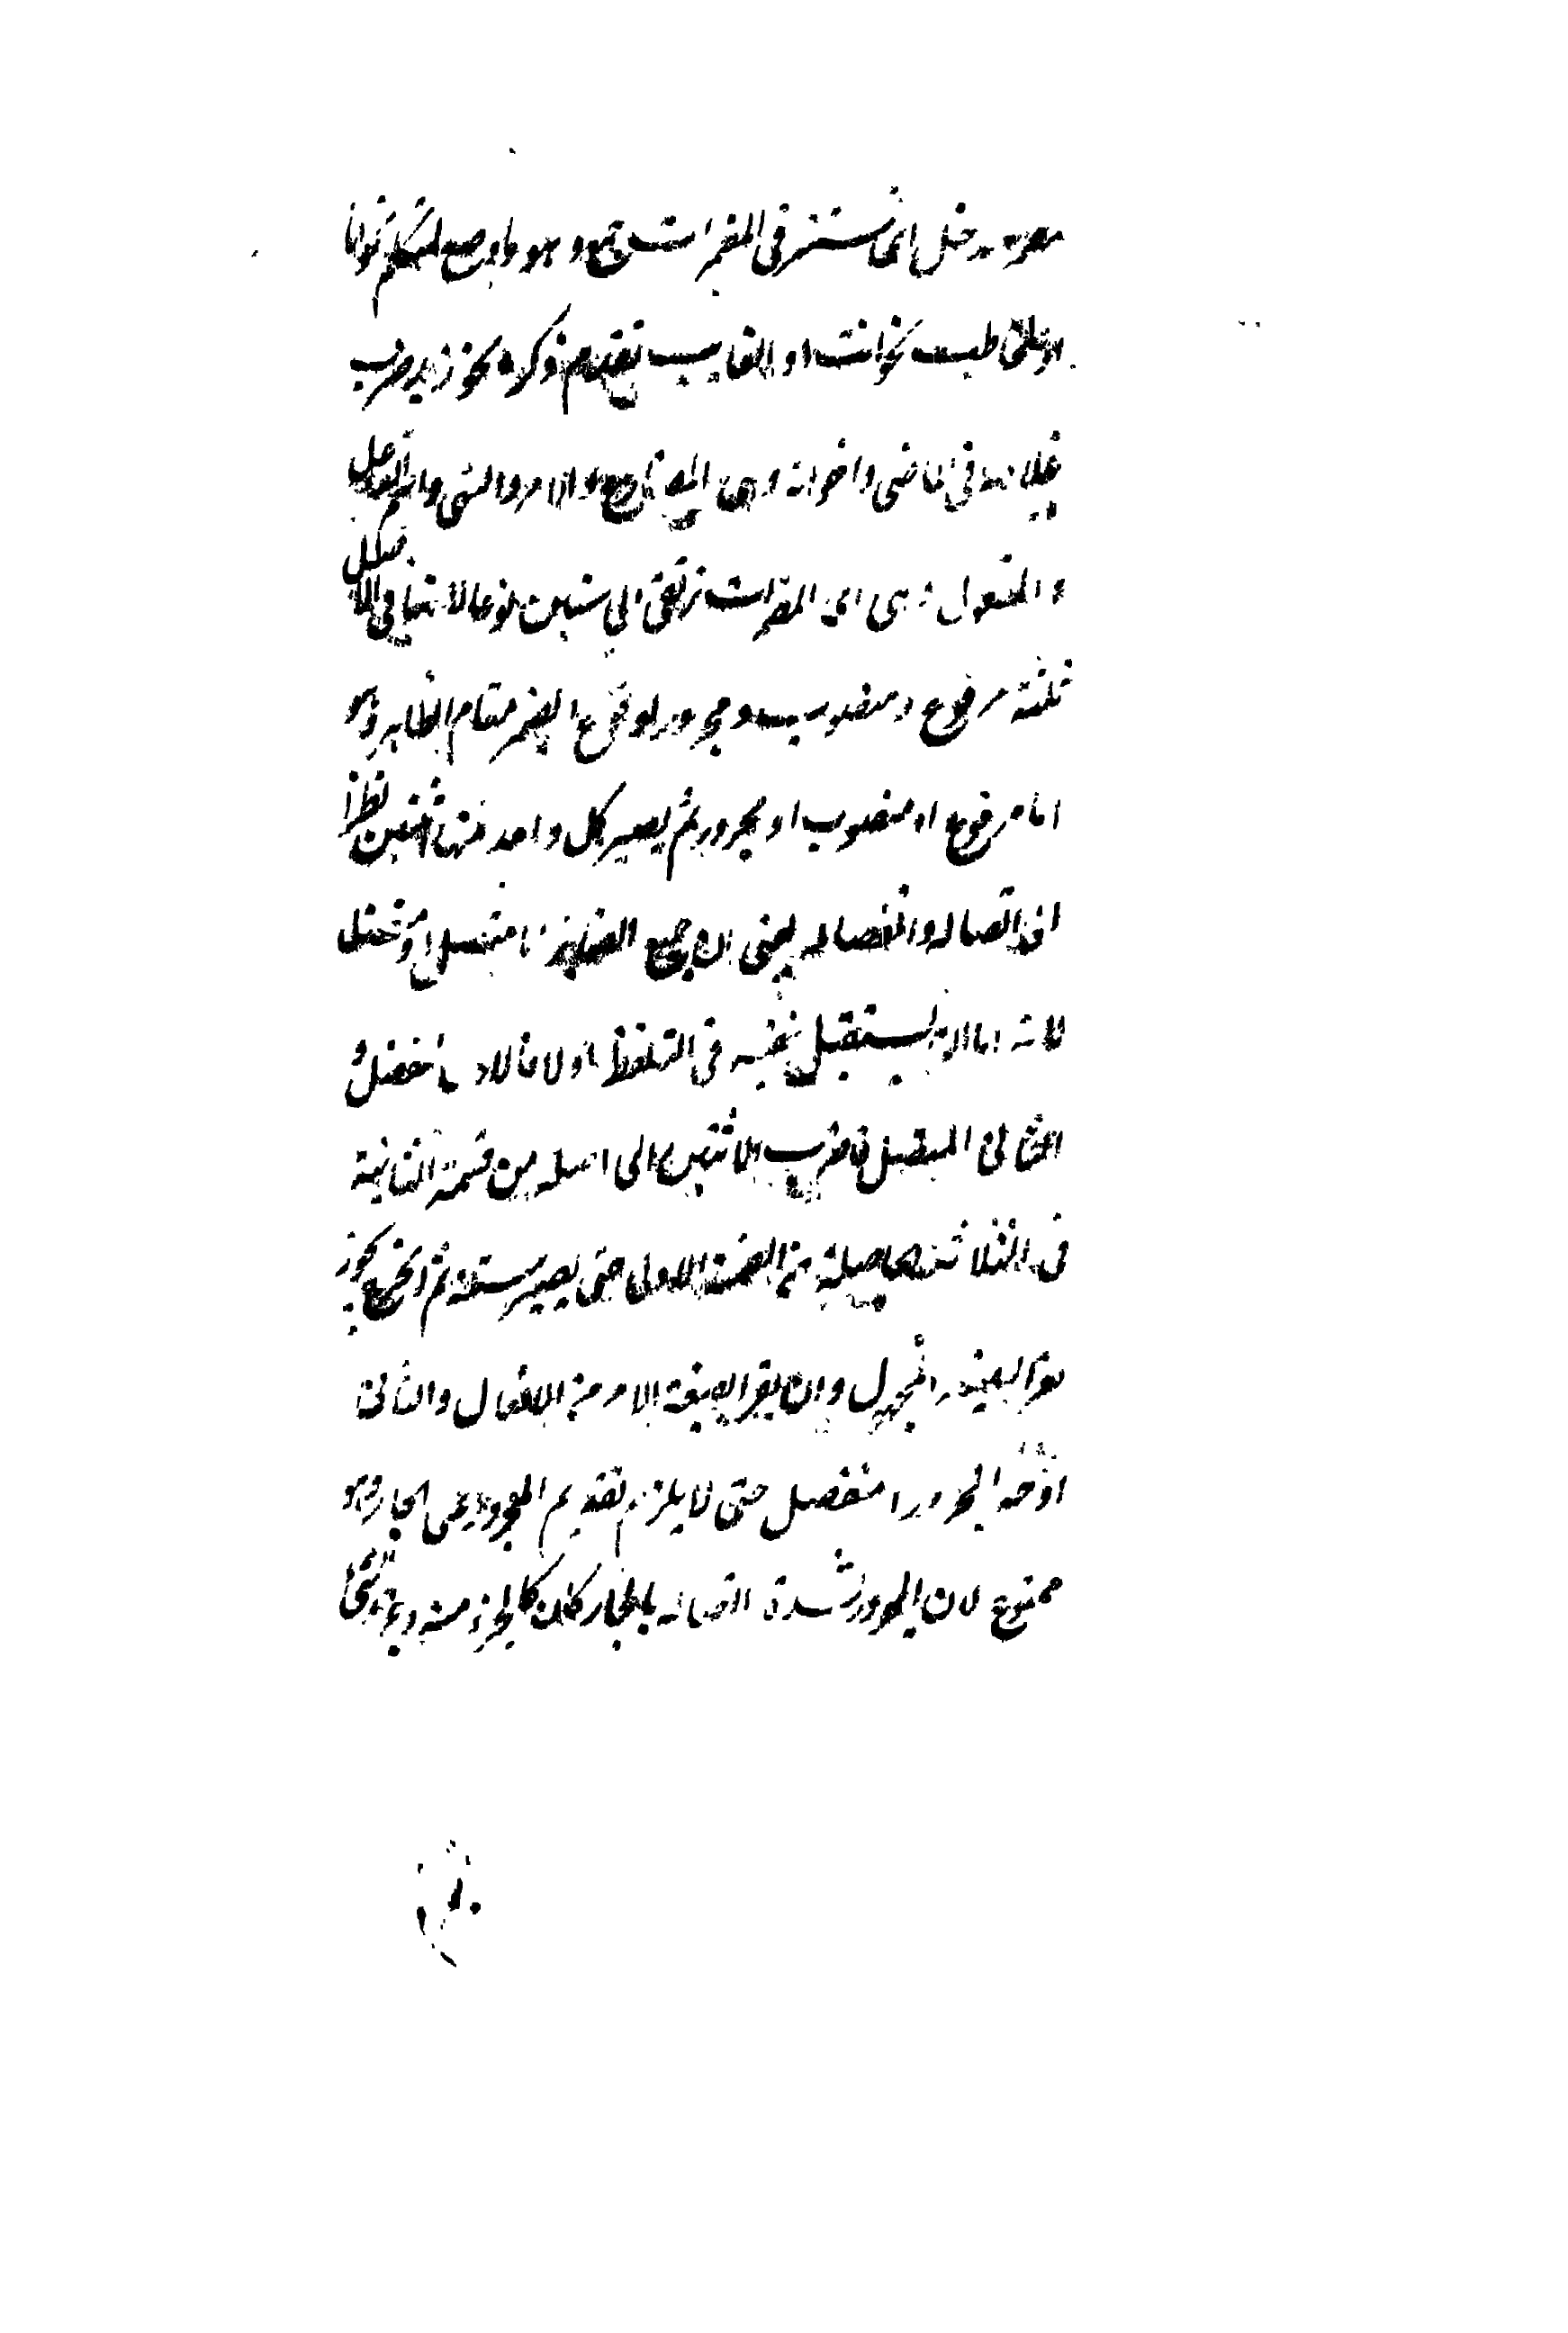 يدخل اى المستتر فى المضمرات جمع وهو ما وضع لمتكلم نحو انا
او مخاطب نحو انت او الغايب تقدم ذكره نحو زيد ضرب
غلامه فى الماضى واخواته وهى المضارع والامر والنهى واسم الفاعل
والمفعول وهى اى المضمرات ترتقى الى ستين نوعا لانها فى الاصل
ثلثة مرفوع ومنصوب ومجرور لوقوع المضمر مقام الظاهر وهو
اما مرفوع او منصوب او مجرور ثم يصير كل واحد منها اثنين نظرا
الى اتصاله وانفصاله يعنى ان جميع الضماير اما متصل او منفصل
لانه اما ان يستقبل بنفسه فى التلفظ او لا فالاول منفصل و
الثانى المتصل فاضرب الاثنين الى اصله من قسمة الثانية
فى الثلاثة الحاصلة من القسمة الاولى حتى يصير ستة ثم اخرج يجوز
بصيغة المجهول وان يقرأ بصيغة الامر من الافعال والثانى
المجرور المنفصل حتى لا يلزم تقديم المجرور على الجار وهو
ممتنع لان المجرور لشدة اتصاله بالجار كان كالجزء منه